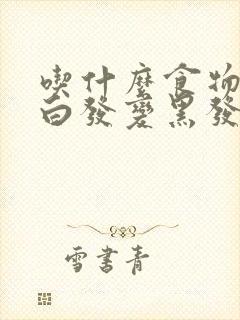 喫什麼食物
白發變黑發
雪書青